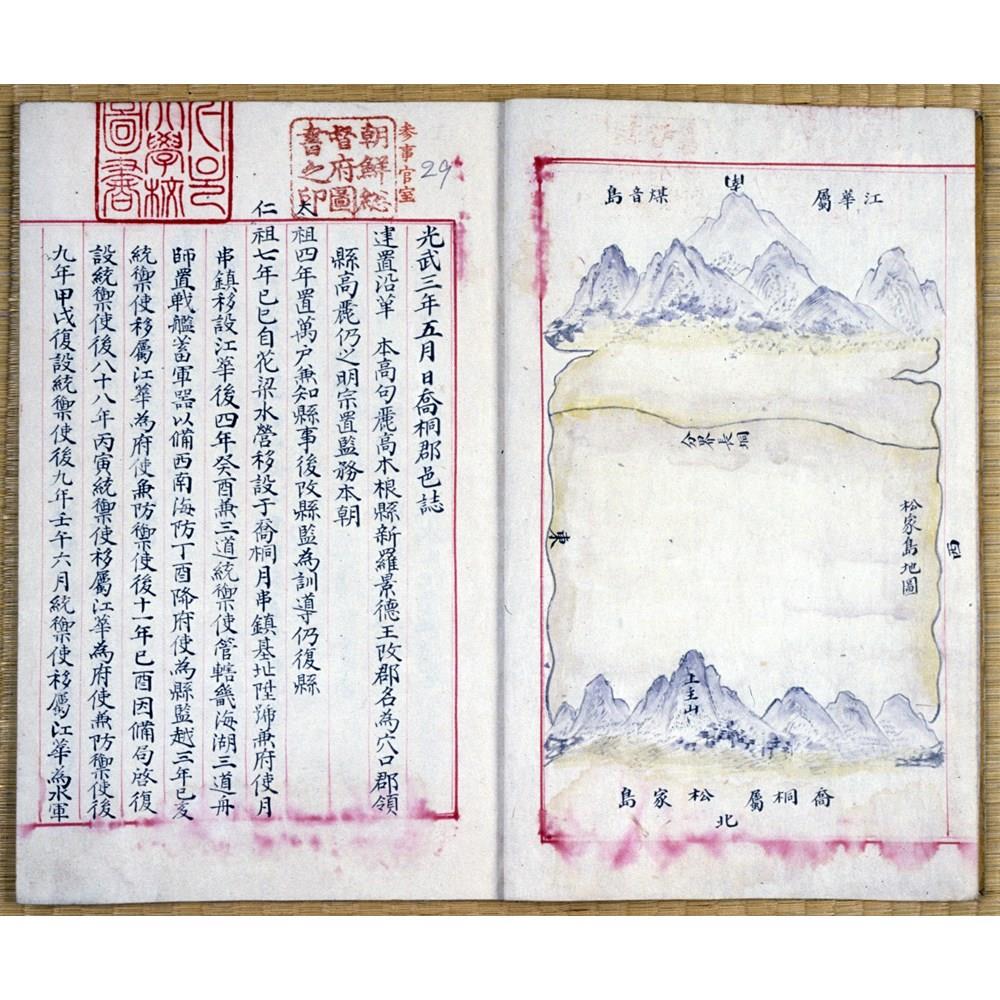 江華屬 煤音島
南
分界長洞
松家島地圖
西
東
上主山
喬桐屬 松家島
北
參事官室
朝鮮総
督府圖
書之印
29
大學校
圖書
光武三年五月 日喬桐郡邑誌
建置沿革 本高句麗高木根縣新羅景德王改郡名為穴口郡領
縣高麗仍之明宗置監務本朝
太
祖四年置萬戶兼知縣事後改縣監為訓導仍復縣
仁
祖七年己巳自花梁水營移設于喬桐月串鎮基址陞號兼府使月
串鎮移設江華後四年癸酉兼三道統禦使管轄畿海湖三道舟
師置戰艦蓄軍器以備西南海防丁酉降府使為縣監越三年己亥
統禦使移屬江華為府使兼防禦使後十一年己酉因備局啓復
設統禦使後八十八年丙寅統禦使移屬江華為府使兼防禦使後
九年甲戌復設統禦使後九年壬午六月統禦使移屬江華為水軍